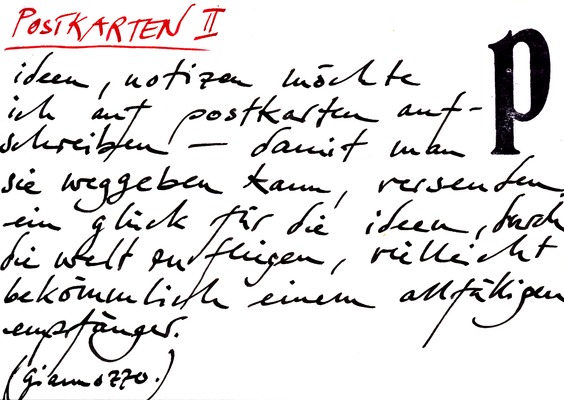 POSTKARTEN II
p
ideen, notizen möchte
ich auf postkarten auf-
schreiben – damit man
sie weggeben kann, versenden,
ein glück für die ideen, durch
die welt zu fliegen, vielleicht
bekömmlich einem allfälligen
empfänger.
(giannozzo.)